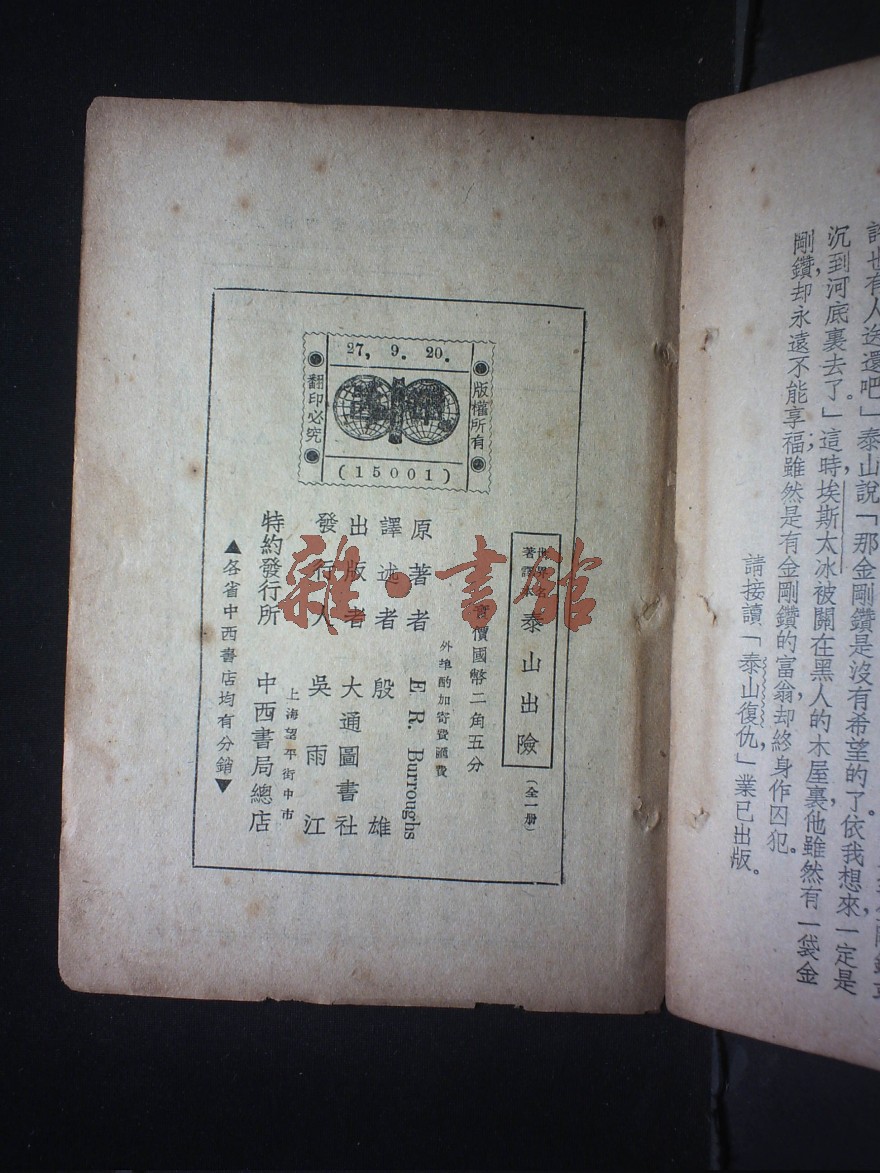 許也有人送還吧」泰山說「那金剛鑽是沒有希望的了。依我想來,一定是
沉到河底裏去了。」這時,埃斯太冰被關在黑人的木屋裏,他雖然有一袋金
剛鑽,却永遠不能享福;雖然是有金剛鑽的富翁,却終身作囚犯。
請接讀「泰山復仇」,業已出版。
27, 9. 20.
版權所有
翻印必究
(15001)
世界名
著譯本
泰山出險
(全一册)
實價國幣二角五分
外埠酌加寄費匯費
原著者 E R. Burroughs
譯述者 殷雄
出版者 大通圖書社
發行人 吳雨江
上海望平街中市
特約發行所 中西書局總店
▲各省中西書店均有分銷▼
雜·書館